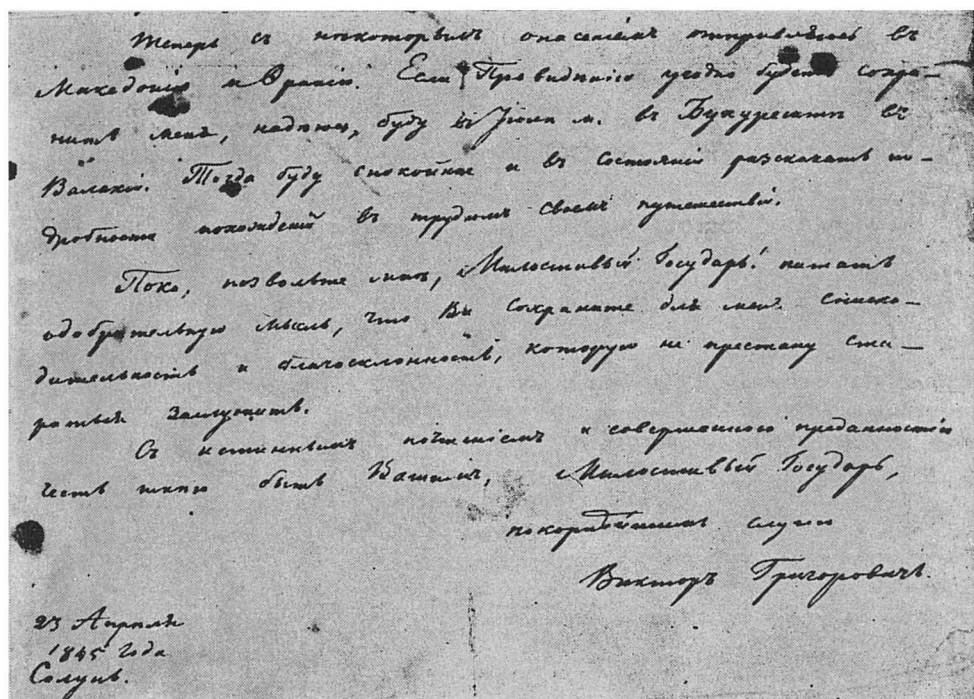 Теперь съ нѣкоторымъ опасеніемъ отправляюсь въ
Македонію и Ѳракію. Если Провидѣнію угодно будетъ сохра–
нить меня, надѣюсь, буду въ Іюлѣ м. въ Букурештѣ въ
Валахіи. Тогда буду спокойнѣе и въ состояніи разсказать по–
дробности похожденій въ трудномъ своемъ путешествіи.
Пока, позвольте мнѣ, Милостивый Государь! питать
одобрительную мысль, что Вы сохраните для меня снисхо–
дительность и благосклонность, которую не престану ста–
раться заслужить.
Съ истиннымъ почтеніемъ и совершенною преданностію
честь имѣю быть Вашимъ, Милостивый Государь,
покорнѣйшимъ слугою
Викторъ Григоровичъ.
23 Апрѣля
1845 года
Солунь.